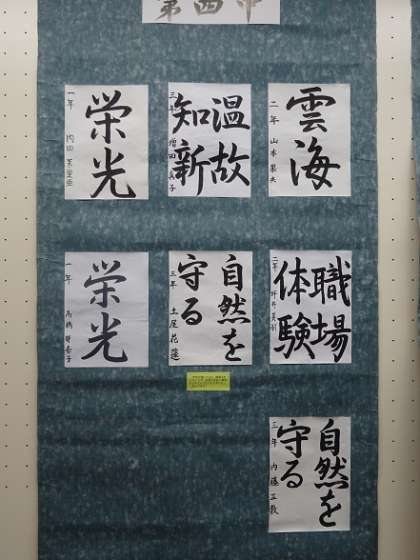 第四中
雲海
二年 山本
温故
知新
三年 増田
栄光
一年 内田
職場
体験
二年
自然を
守る
三年 土屋花蓮
栄光
一年 高橋
自然を
守る
三年 内藤